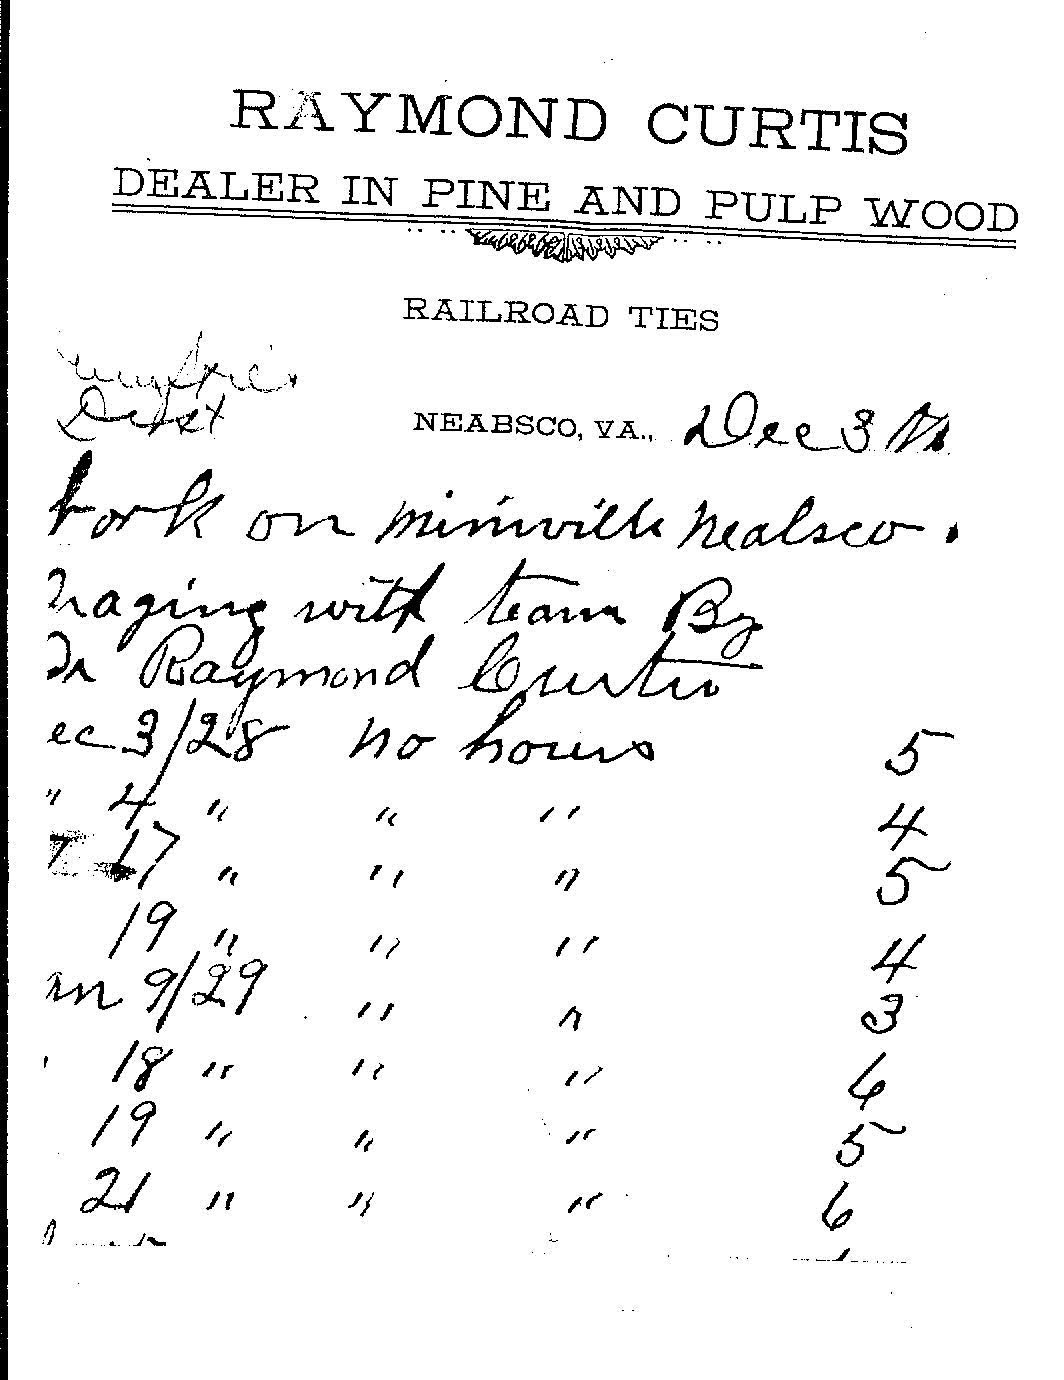 RAYMOND CURTIS
DEALER IN PINE AND PULP WOOD
RAILROAD TIES
Dist
NEABSCO, VA., Dec 3
on Minnville Neabsco.
with team By
Raymond Curtis
ec 3/28 no hours 5
" 4 " " " 4
17 " " " 5
19 " " " 4
an 9/29 " " 3
18 " " " 6
19 " " " 5
21 " " " 6